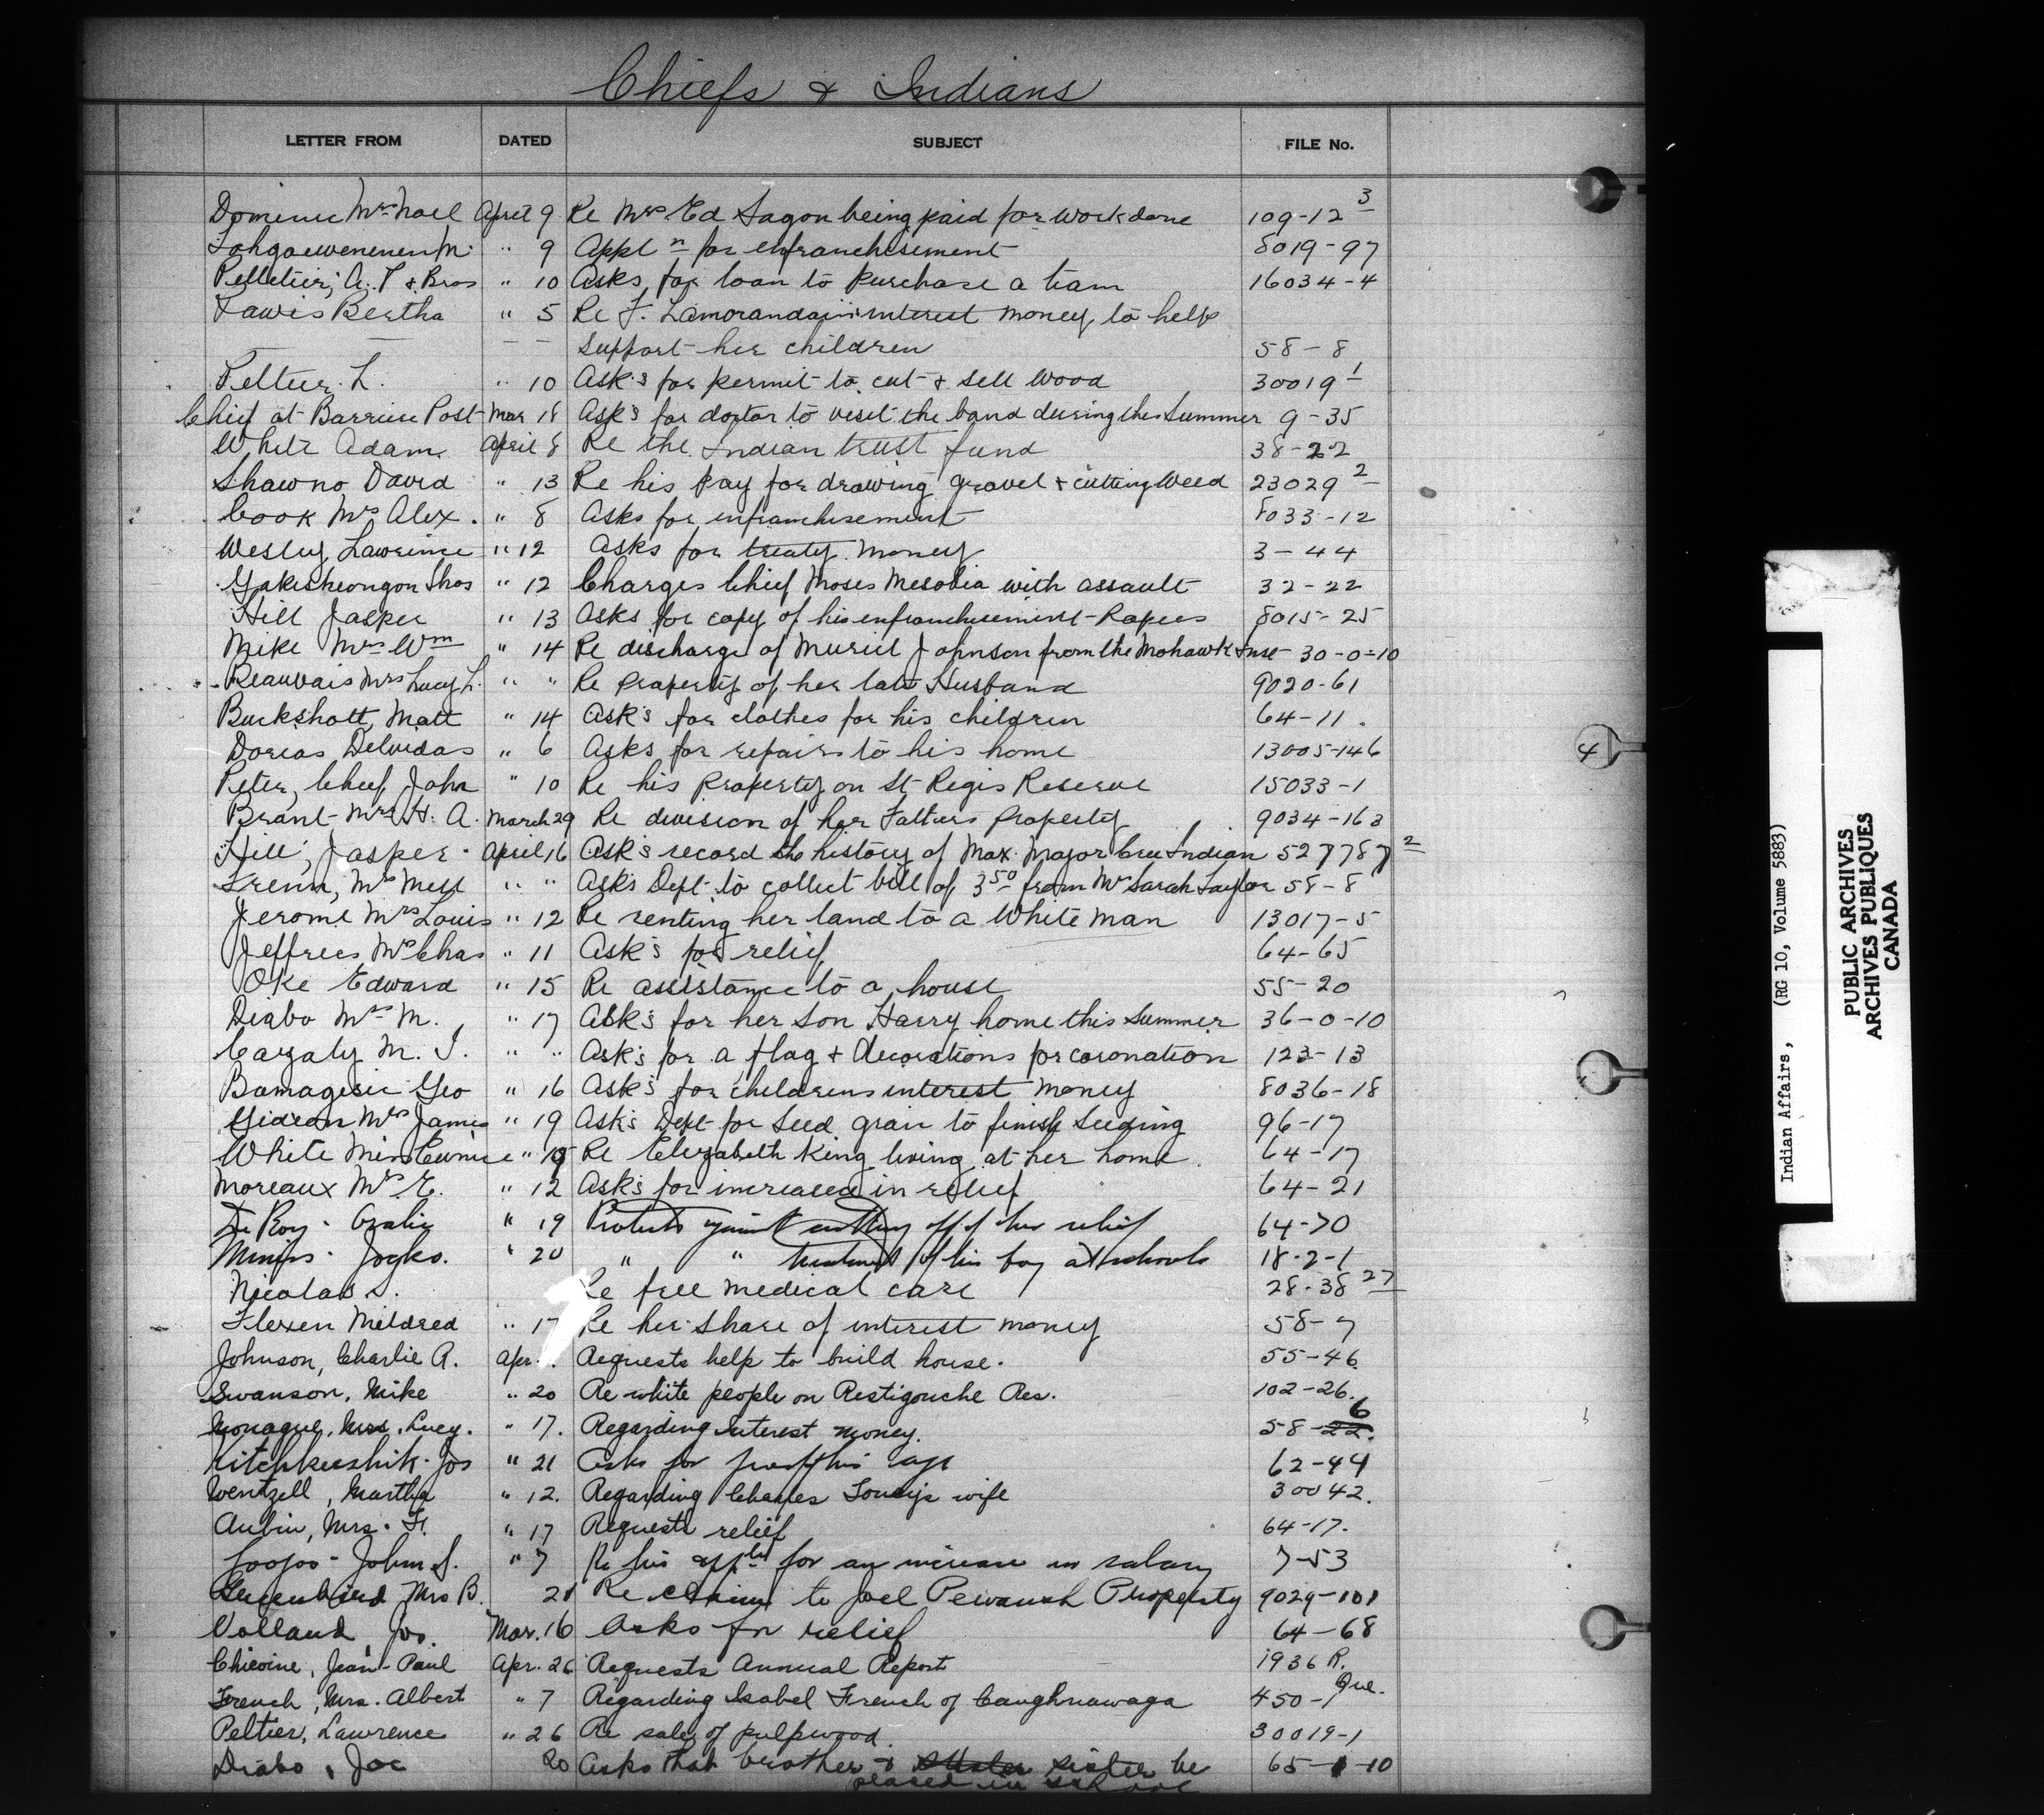 Chiefs & Indians
LETTER FROM DATED SUBJECT FILE No.
Mrs Noel April 9 Re Mrs Ed Sagon being paid for work done 109-12 3
" 9 Appl n for enfranchisement 8019-97
Pelletier, A. P & Bros " 10 Asks for loan to purchase a team 16034-4
Lawis Bertha " 5 Re F. Lamorandain interest money to help
support her children 58-8
Peltier. L. " 10 Ask's for permit to cut & sell wood 30019 1
Chief at Barriere Post Mar 18 Ask's for doctor to visit the band during the Summer 9-35
White Adam April 8 Re the Indian trust fund 38-22
Shawno David " 13 Re his pay for drawing gravel & cutting Weed 23029 2
Cook Mrs Alex. " 8 Asks for enfranchisement 8033-12
Wesley Lawrence " 12 Asks for treaty money 3-44
Thos " 12 Charges Chief Moses with assault 32-22
Hill Jasper " 13 Asks for copy of his enfranchisement Papers 8015-25
Mike Mrs Wm " 14 Re discharge of Muriel Johnson from the Mohawk Inst 30-0-10
Beauvais Mrs Lucy L. " " Re property of her late Husband 9020-61
Buckshott, Matt " 14 Ask's for clothes for his children 64-11.
Delvidas " 6 Asks for repairs to his home 13005-146
Peter, Chief John " 10 Re his property on St Regis Reserve 15033-1
Brant Mrs H. A. March 29 Re division of her Fathers property 9034-163
Hill, Jasper April 16 Ask's record the history of Max. Major Cree Indian 527787 2
" " Asks Dept to collect bill of 3 50 from Mrs Sarah Taylor 58-8
Jerome Mrs Louis " 12 Re renting her land to a White man 13017-5
Jeffries Mrs Chas " 11 Ask's for relief 64-65
Oke Edward " 15 Re assistance to a house 55-20
Diabo Mrs M. " 17 Ask's for her son Harry home this summer 36-0-10
M. J. " " Ask's for a flag & decorations for coronation 123-13
Bamagesic Geo " 16 Ask's for childrens interest money 8036-18
Gideon Mrs James " 19 Ask's Dept for Seed grain to finish seeding 96-17
White Miss Eunice " Re Elizabeth King living at her home. 64-17
Moreaux Mrs E. " 12 Ask's for increased in relief 64-21
De Roy - " 19 Protests against cutting off of her relief 64-70
" 20 " " treatment of his boy at schools 18-2-1
Nicolas S. Re free medical care 28-38 27
Flexen Mildred " 17 Re her share of interest money 58-7
Johnson, Charlie A. Apr. Requests help to build house. 55-46
Swanson, Mike " 20 Re white people on Restigouche Res. 102-26.
Monague, Mrs. Lucy. " 17. Regarding interest money. 58-22. 6
Kitchkeeshik - Jos " 21 Asks for proof of his age 62-44
Wentzell, Martha " 12. Regarding Charles wife 30042.
Aubin, Mrs. F. " 17 Requests relief 64-17.
John S. " 7 Re his appln for an increase in salary 7-53
Greenbird Mrs B. 21 Re claim to Joel Pewaush Property 9029-101
Volland, Jos. Mar. 16 Asks for relief 64-68
Jean-Paul Apr. 26 Requests Annual Report 1936 R.
French, Mrs. Albert " 7 Regarding Isabel French of Caughnawaga 450-1 Que.
Peltier, Lawrence " 26 Re sale of pulpwood. 30019-1
Diabo, Joe 20 Asks that brother & sister be 65-1-10
placed in school
4
Indian Affairs, (RG 10, Volume 5883)
PUBLIC ARCHIVES
ARCHIVES PUBLIQUES
CANADA